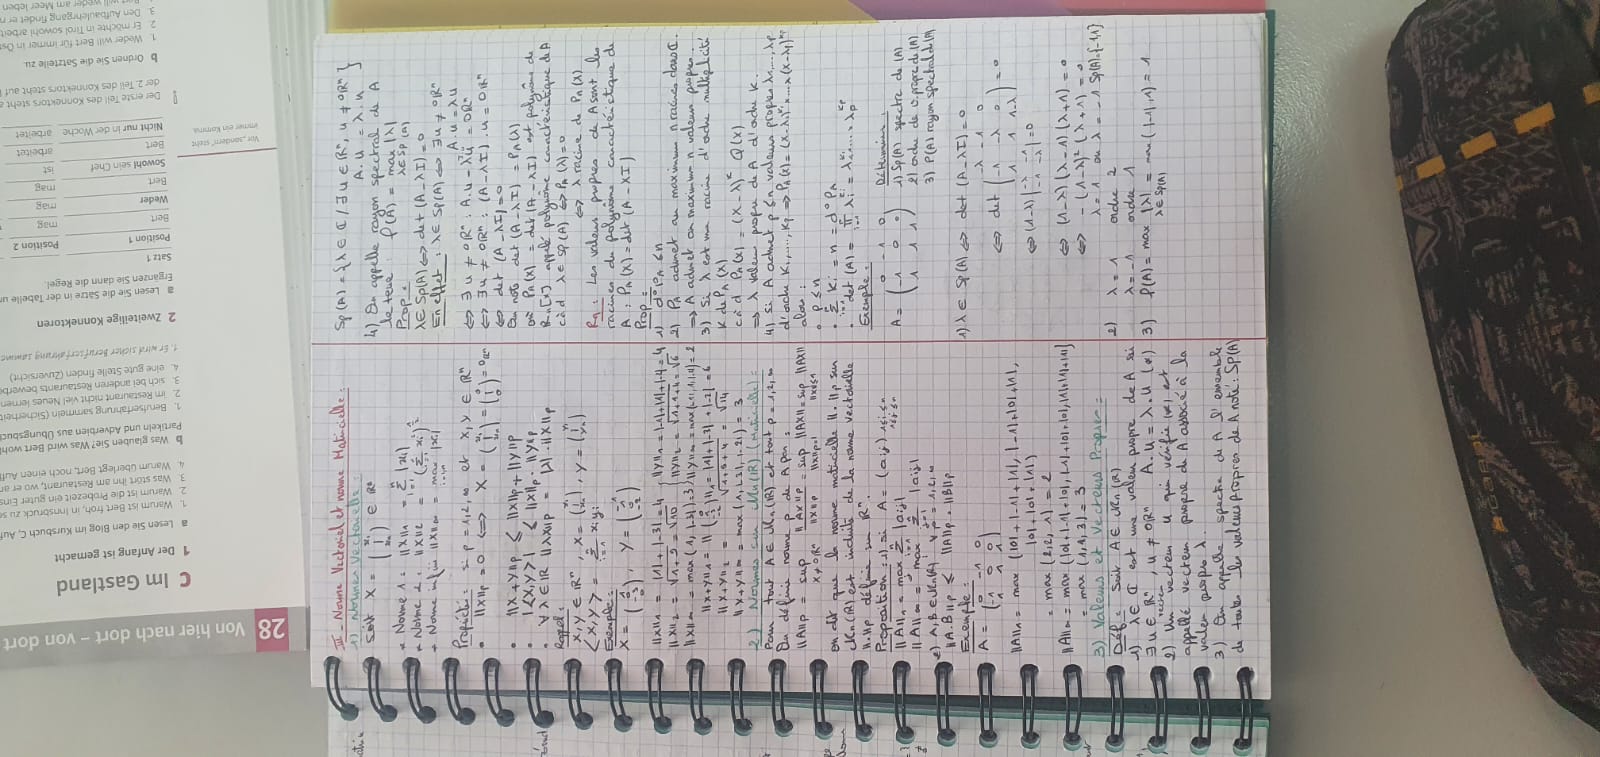 28 Von hier nach dort – von dort
C Im Gastland
1 Der Anfang ist gemacht
a Lesen Sie den Blog im Kursbuch C,
1. Warum ist Bert froh, in Innsbruck zu
2. Warum ist die Probezeit ein guter
3. Was stört ihn am Restaurant, wo er
4. Warum überlegt Bert, noch einen
b Was glauben Sie? Was wird Bert
Partikeln und Adverbien aus
1. Berufserfahrung sammeln (Sicherheit
2. im Restaurant nicht viel Neues lernen
3. sich bei anderen Restaurants
4. eine gute Stelle finden (Zuversicht)
1. Er wird sicher Berufserfahrung
2 Zweiteilige Konnektoren
a Lesen Sie die Sätze in der Tabelle
Ergänzen Sie dann die Regel.
Satz 1
Position 1 Position 2
Bert mag
Weder mag
Bert mag
Sowohl sein Chef ist
Bert arbeitet
Nicht nur in der Woche arbeitet
Vor „sondern“ steht
immer ein Komma.
Der erste Teil des Konnektors steht
der 2. Teil des Konnektors steht auf
b Ordnen Sie die Satzteile zu.
1. Weder will Bert für immer in
2. Er möchte in Tirol sowohl
3. Den Aufbaulehrgang findet er
III - Norme Vectoriel et norme Matricielle :
1) Normes Vectorielle :
Soit X = (x₁ ⋮ xₙ) ∈ ℝⁿ
* Norme 1 : ||X||₁ = Σ |xᵢ|
* Norme 2 : ||X||₂ = (Σ xᵢ²)^½
* Norme infini ||X||∞ = max |xᵢ|
Propriétés : si p = 1, 2, ∞ et X, Y ∈ ℝⁿ
• ||X||p = 0 ⟺ X = (x₁ ⋮ xₙ) = (0 ⋮ 0) = 0ℝⁿ
• ||X + Y||p ≤ ||X||p + ||Y||p
• |<X,Y>| ≤ ||X||p · ||Y||p
• ∀ λ ∈ ℝ ||λX||p = |λ| · ||X||p
Rappel :
X, Y ∈ ℝⁿ, X = (x₁ ⋮ xₙ), Y = (y₁ ⋮ yₙ)
<X, Y> = Σ xᵢyᵢ
Exemple :
||X||₁ = |1| + |-3| = 4
||X||₂ = √1+9 = √10
||Y||₂ = √1+1+4 = √6
||X+Y||₂ = √1+9+4 = √14
2) Normes sur ℳn(ℝ) (Matricielle) :
Pour tout A ∈ ℳn(ℝ) et tout p = 1, 2, ∞
On définie norme p de A par :
||A||p = sup ||AX||p / ||X||p = sup ||AX|| = sup ||AX||
on dit que la norme matricielle ||.||p sur
ℳn(ℝ) est induite de la norme vectorielle
||.||p définie sur ℝⁿ.
Proposition : 1) si A = (aij) 1≤i≤n 1≤j≤n
||A||₁ = max Σ |aij|
||A||∞ = max Σ |aij|
2) A, B ∈ ℳn(ℝ) ∀ p = 1, 2, ∞
||A.B||p ≤ ||A||p · ||B||p
Exemple :
A = (0 -1 0 / -1 0 0 / 1 1 1)
||A||₁ = max (|0| + |-1| + |1|, |-1| + |0| + |1|,
|0| + |0| + |1|)
= max (2, 2, 1) = 2
||A||∞ = max (|0| + |-1| + |0|, |-1| + |0| + |0|, |1| + |1| + |1|)
= max (1, 1, 3) = 3
3) Valeurs et Vecteurs Propres :
Déf : Soit A ∈ ℳn(ℝ)
1) λ ∈ ℂ est une valeur propre de A si
∃ u ∈ ℝⁿ, u ≠ 0ℝⁿ A.u = λ.u (*)
2) Un vecteur u qui vérifie (*) est
appellé vecteur propre de A associé à la
valeur propre λ.
3) On appelle spectre de A l'ensemble
de toutes les valeurs propres de A noté : Sp(A)
Sp(A) = {λ ∈ ℂ / ∃ u ∈ ℝⁿ, u ≠ 0ℝⁿ
A.u = λ.u }
4) On appelle rayon spectral de A
le terme : ρ(A) = max |λ| λ∈Sp(A)
Prop :
λ ∈ Sp(A) ⟺ det(A - λI) = 0
En effet : λ ∈ Sp(A) ⟺ ∃ u ≠ 0ℝⁿ
A.u = λu
⟺ ∃ u ≠ 0ℝⁿ : A.u - λu = 0ℝⁿ
⟺ ∃ u ≠ 0ℝⁿ : (A - λI).u = 0ℝⁿ
⟺ det(A - λI) = 0
On note det(A - λI) = PA(λ)
où PA(X) = det(A - XI) est polynôme de
ℝn[X] appelé polynôme caractéristique de A
càd λ ∈ Sp(A) ⟺ PA(λ) = 0
⟺ λ racine de PA(X)
Rq : Les valeurs propres de A sont les
racines du polynôme caractéristique de
A : PA(X) = det(A - XI)
Prop :
1) d°PA ≤ n
2) PA admet au maximum n racines dans ℂ.
⟹ A admet au maximum n valeurs propres.
3) Si λ est une racine d'ordre multiplicité
K de PA(X)
càd PA(X) = (X - λ)ᴷ Q(X)
⟹ λ valeur propre de A d'ordre K.
4) si A admet p ≤ n valeurs propres λ₁, ..., λp
d'ordre K₁, ..., Kp ⟹ PA(X) = (X-λ₁)^K₁ × ... × (X-λp)^Kp
alors :
• p ≤ n
• Σ Kᵢ = n = d°PA
• det(A) = Π λᵢ^Kᵢ = λ₁^K₁ ... λp^Kp
Exemple :
A = (0 -1 0 / -1 0 0 / 1 1 1)
Déterminer :
1) Sp(A) spectre de (A)
2) ordre de v.propre de (A)
3) ρ(A) rayon spectral de (A)
1) λ ∈ Sp(A) ⟺ det(A - λI) = 0
⟺ det (-λ -1 0 / -1 -λ 0 / 1 1 1-λ) = 0
⟺ (1-λ) |-λ -1 / -1 -λ| = 0
⟺ (1-λ)(λ-1)(λ+1) = 0
⟺ -(1-λ)²(λ+1) = 0
λ = 1 ou λ = -1 Sp(A)={-1,1}
2) λ = 1 ordre 2
λ = -1 ordre 1
3) ρ(A) = max |λ| λ∈Sp(A) = max(|-1|, 1) = 1